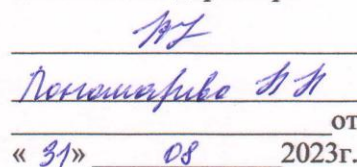 Пономарёва Н Н
от
« 31» 08 2023г.